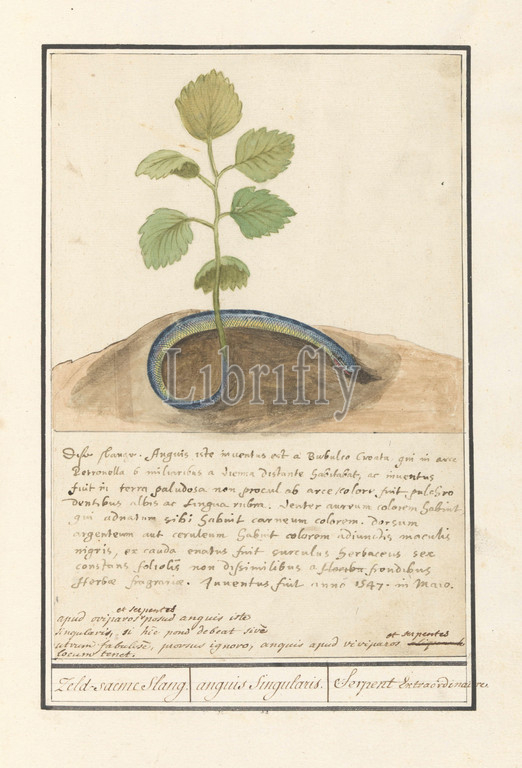 Anguis iste inventus est a Bubulco Croata, qui in arce
Petronella 6 miliaribus a Vienna Distante habitabat, ac inventus
fuit in terra paludosa non procul ab arce colore fuit pulchro
dentibus albis ac lingua rubra. Venter aureum colorem habuit
qui adnatum sibi habuit carneum colorem. dorsum
argenteum aut ceruleum habuit colorem adiunctis maculis
nigris, ex cauda enatus fuit surculus herbaceus sex
constans foliolis non dissimilibus a frondibus
Herbæ fragrariæ. Inventus fuit anno 1547. in Maio.
et serpentes
apud oviparos posus anguis iste
singularis, si hic poni debeat sive
et serpentes
utrum fabulise, prorsus ignoro, anguis apud viviparos
locum tenet.
Zeld-saeme Slang.
anguis Singularis.
Serpent Extraordinaire.
Librifly